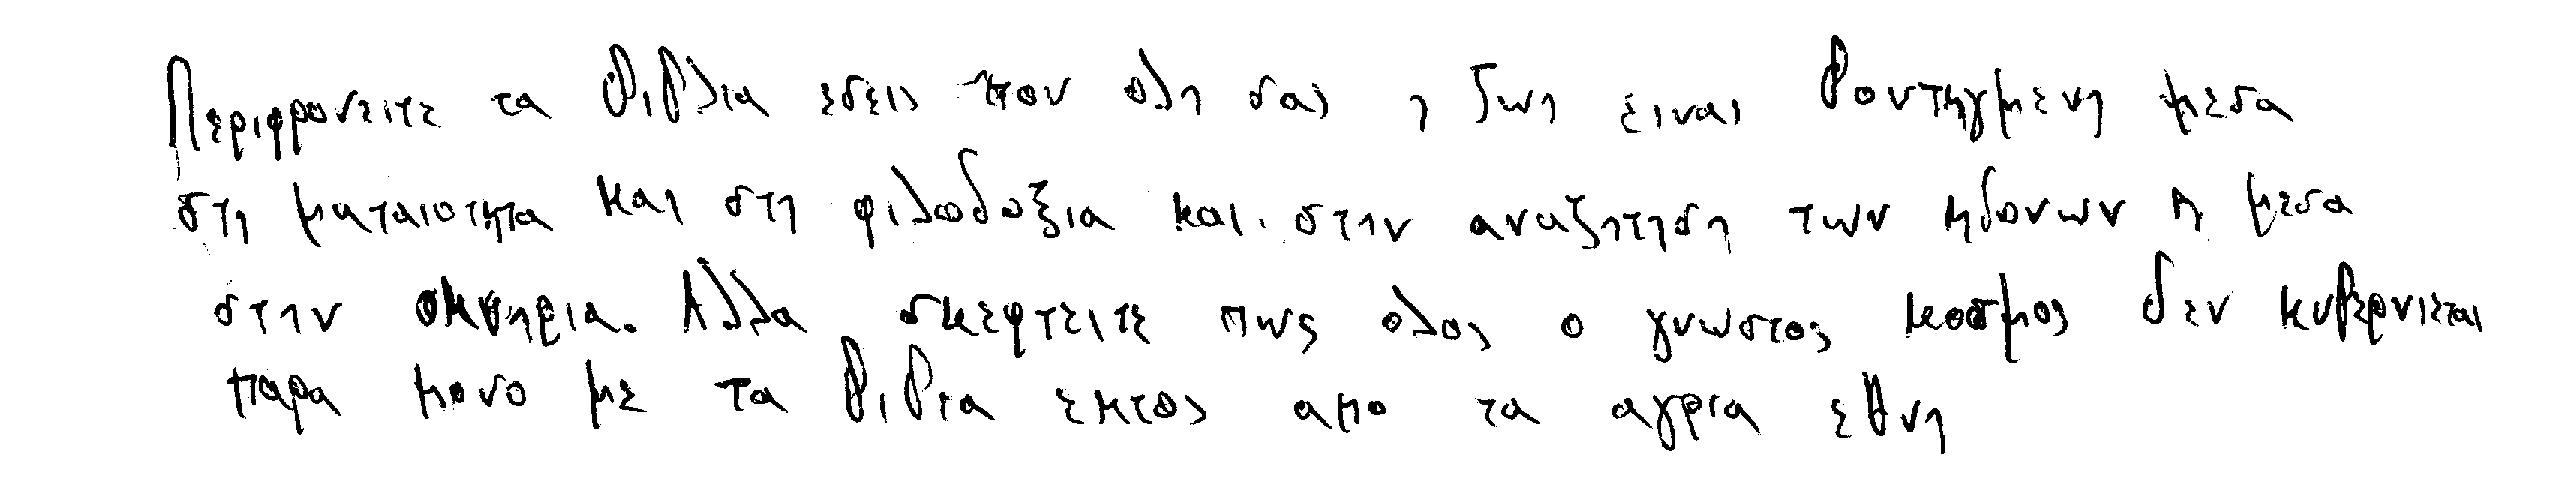 Περιφρονειτε τα βιβλια εσεις που ολη σας η ζωη ειναι βουτηγμενη μεσα
στη ματαιοτητα και στη φιλοδοξια και στην αναζητηση των ηδονων η μεσα
στην οκνηρια. Αλλα σκεφτειτε πως ολος ο γνωστος κοσμος δεν κυβερνιεται
παρα μονο με τα βιβια εκτος απο τα αγρια εθνη